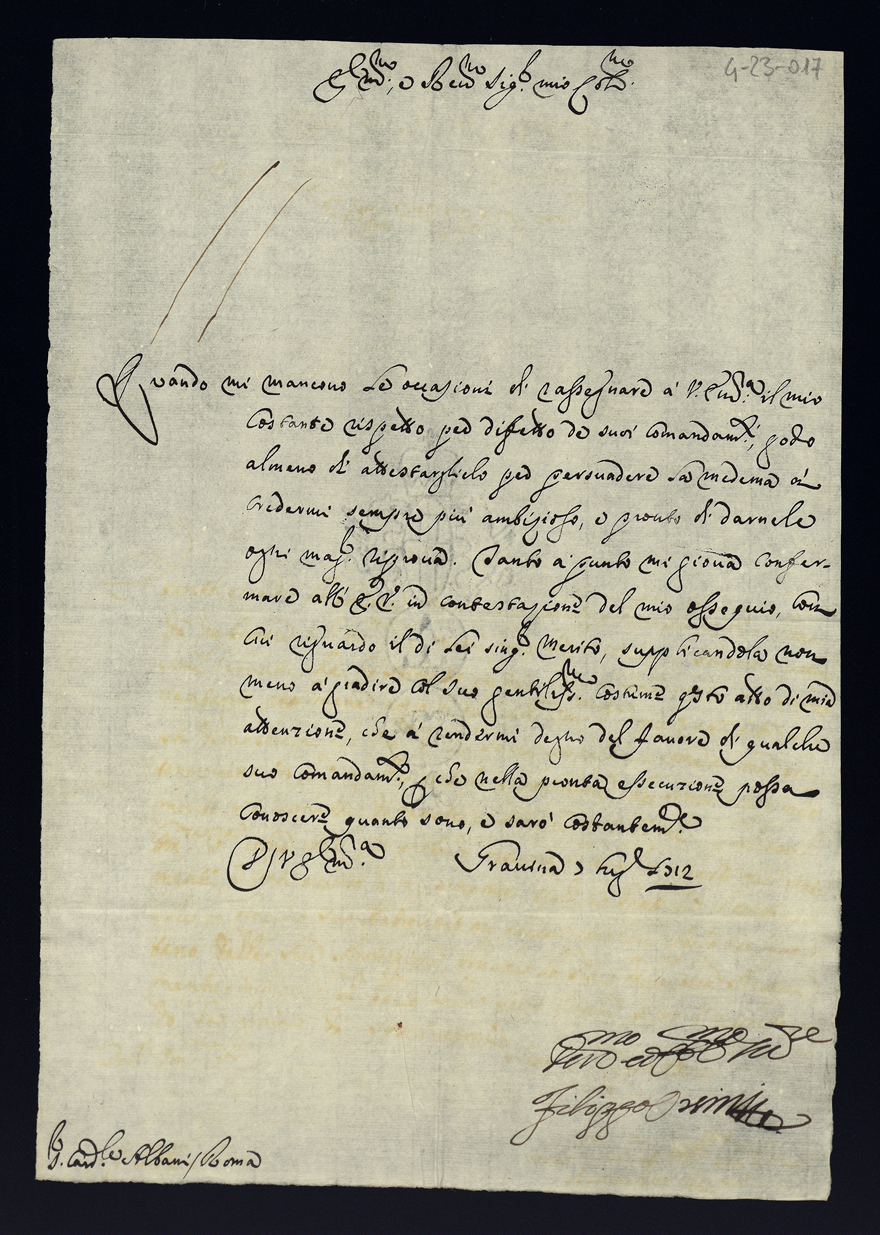 4-23-017
Em.mo, e Rev.mo Sig.r mio Col.mo
Quando mi mancono le occasioni di rassegnare à V. Em.a il mio
costante rispetto per difetto de suoi comandam.ti, godo
almeno di attestarglielo per persuadere la medema à
credermi sempre più ambizioso, e pronto di darnele
ogni mag.r riprova. Tanto a punto mi giova confer-
mare all'E. V. in contestazione del mio ossequio, con
cui riguardo il di lei sing.r merito, supplicandola non
meno à gradire col suo gentiliss.mo costume q.sto atto di mia
attenzione, che à rendermi degno del favore di qualche
suo comandam.to, che nella pronta essecuzione possa
conoscere quanto sono, e sarò costantem.te
Di V. Em.a Gravina Lug.o 1712
Dev.mo ed Obb.mo Ser.re
Filippo Orsini
S. Card.le Albani / Roma